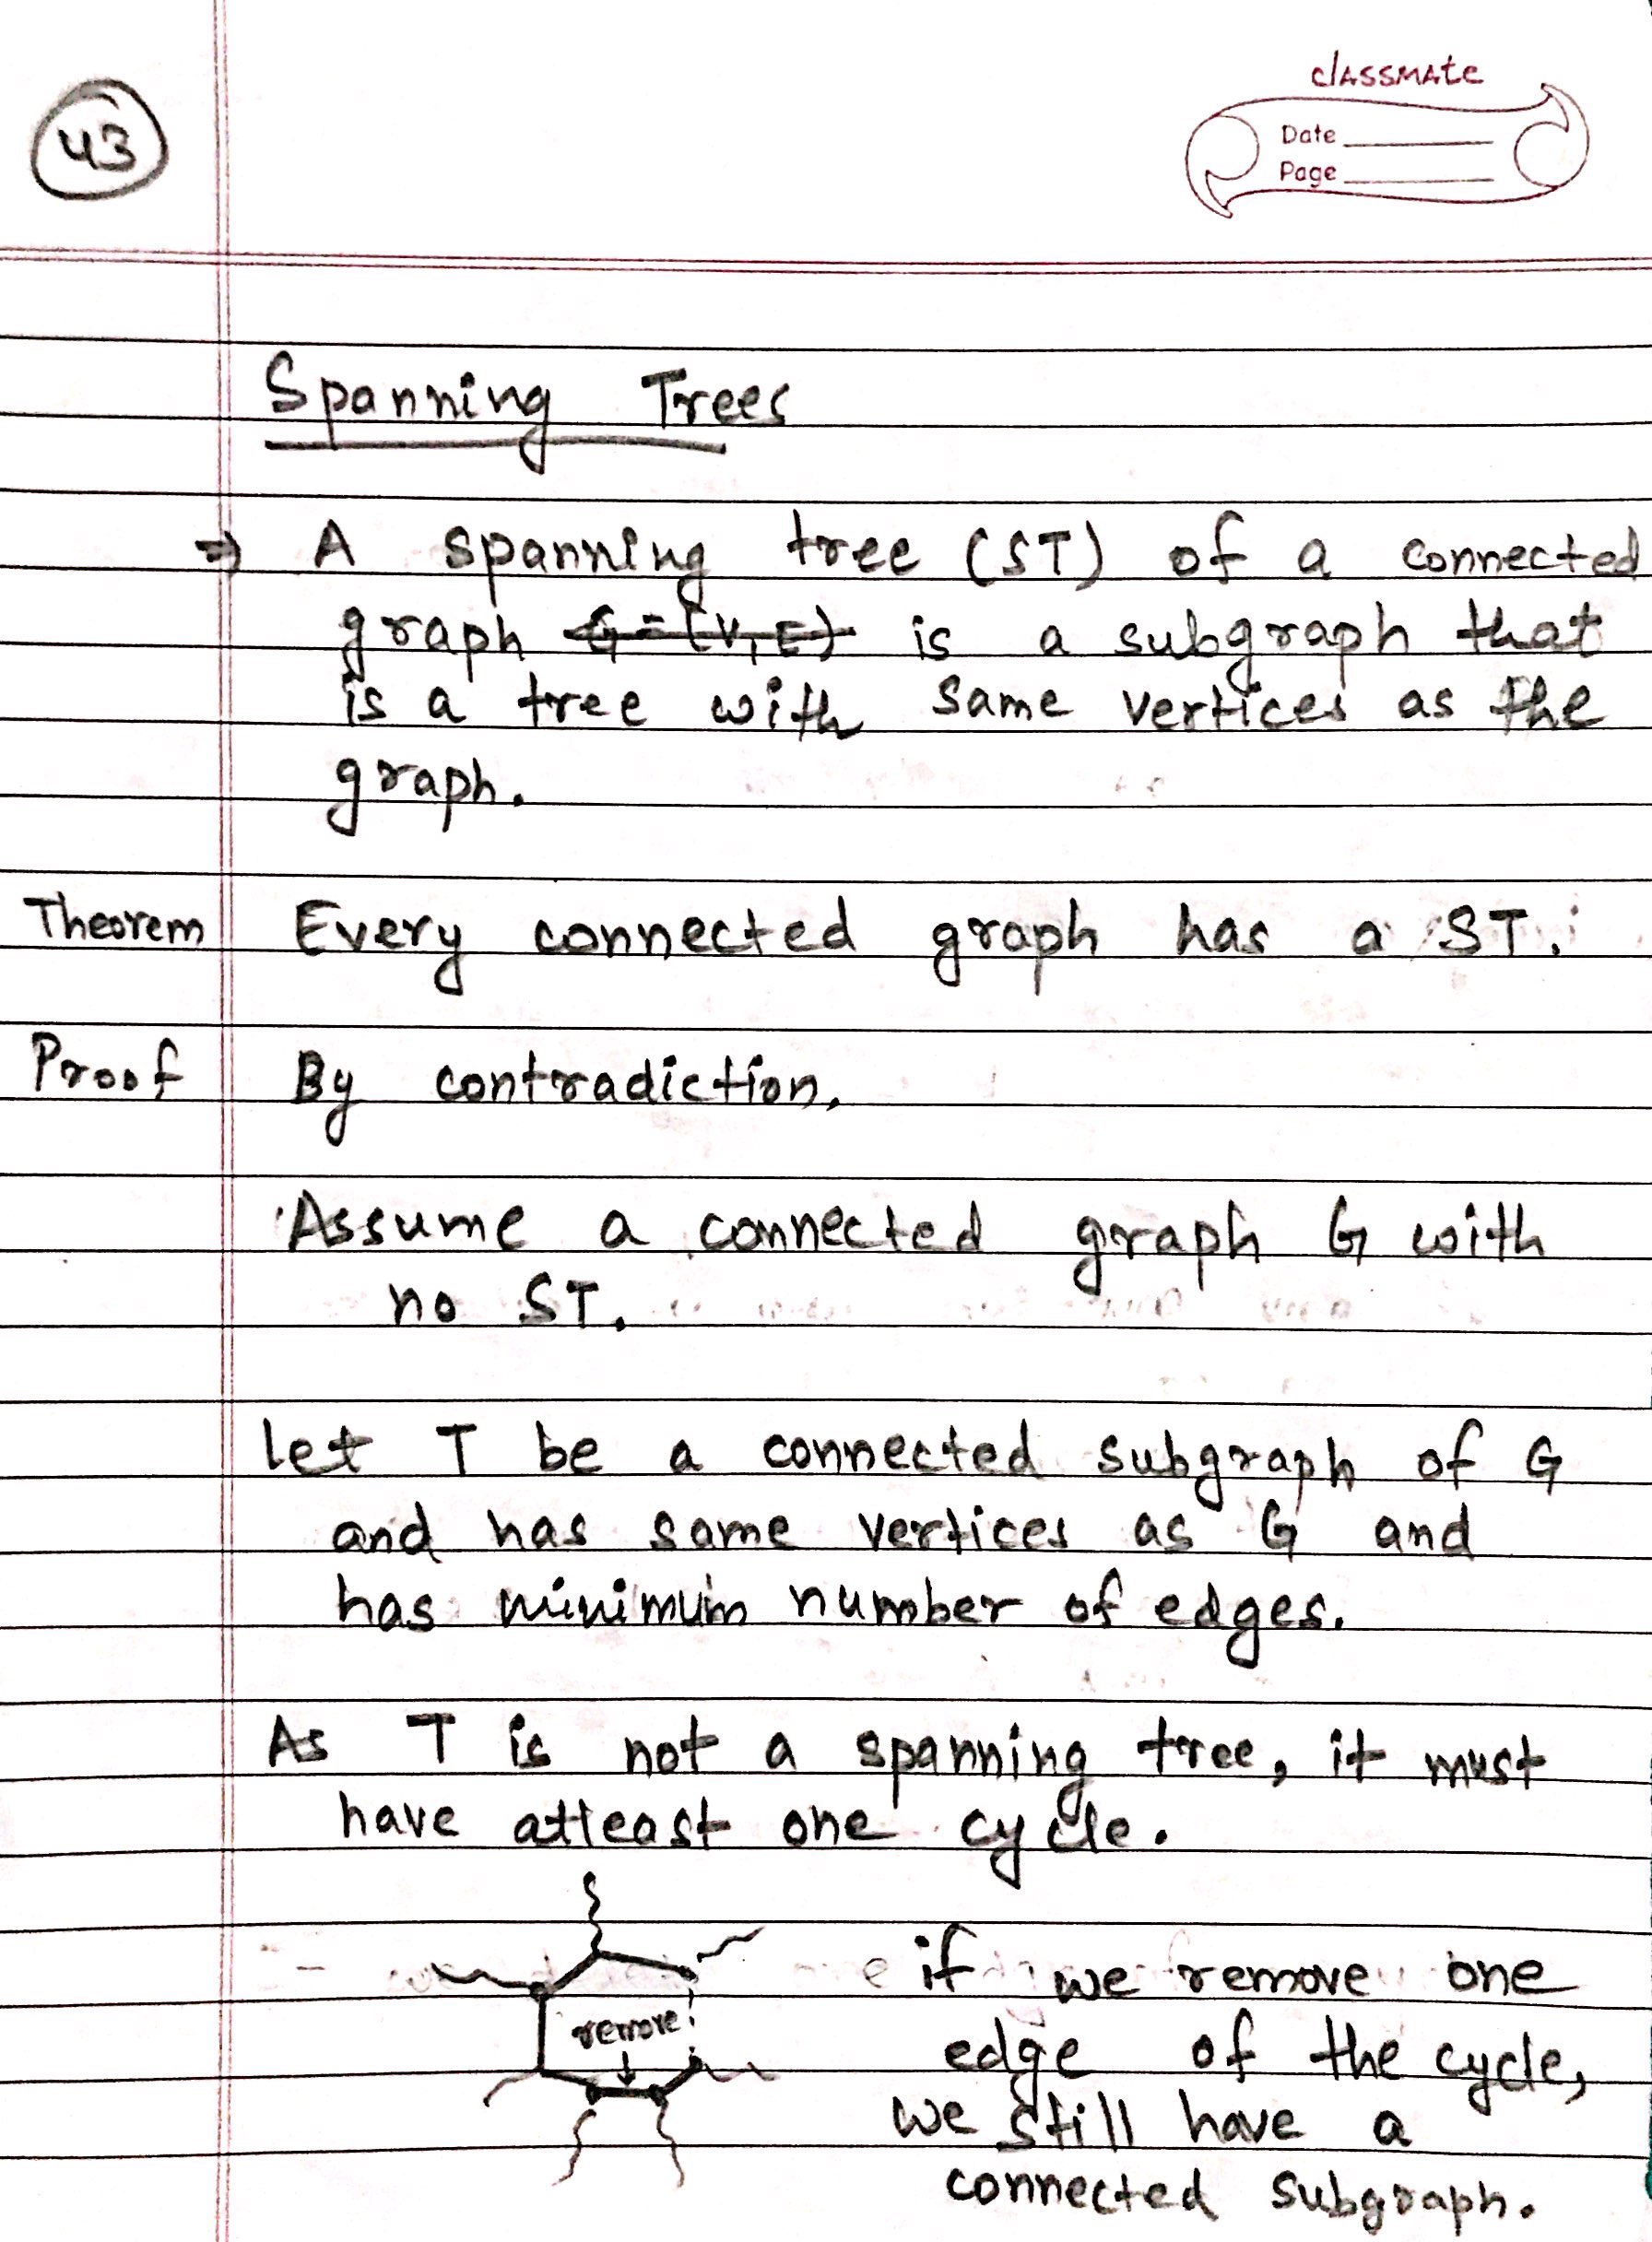 43
classmate
Date
Page
Spanning Trees
⇒ A spanning tree (ST) of a connected
graph G=(V,E) is a subgraph that
is a tree with same vertices as the
graph.
Theorem Every connected graph has a ST.
Proof By contradiction.
Assume a connected graph G with
no ST.
Let T be a connected subgraph of G
and has same vertices as G and
has minimum number of edges.
As T is not a spanning tree, it must
have atleast one cycle.
remove
↓
if we remove one
edge of the cycle,
we still have a
connected subgraph.